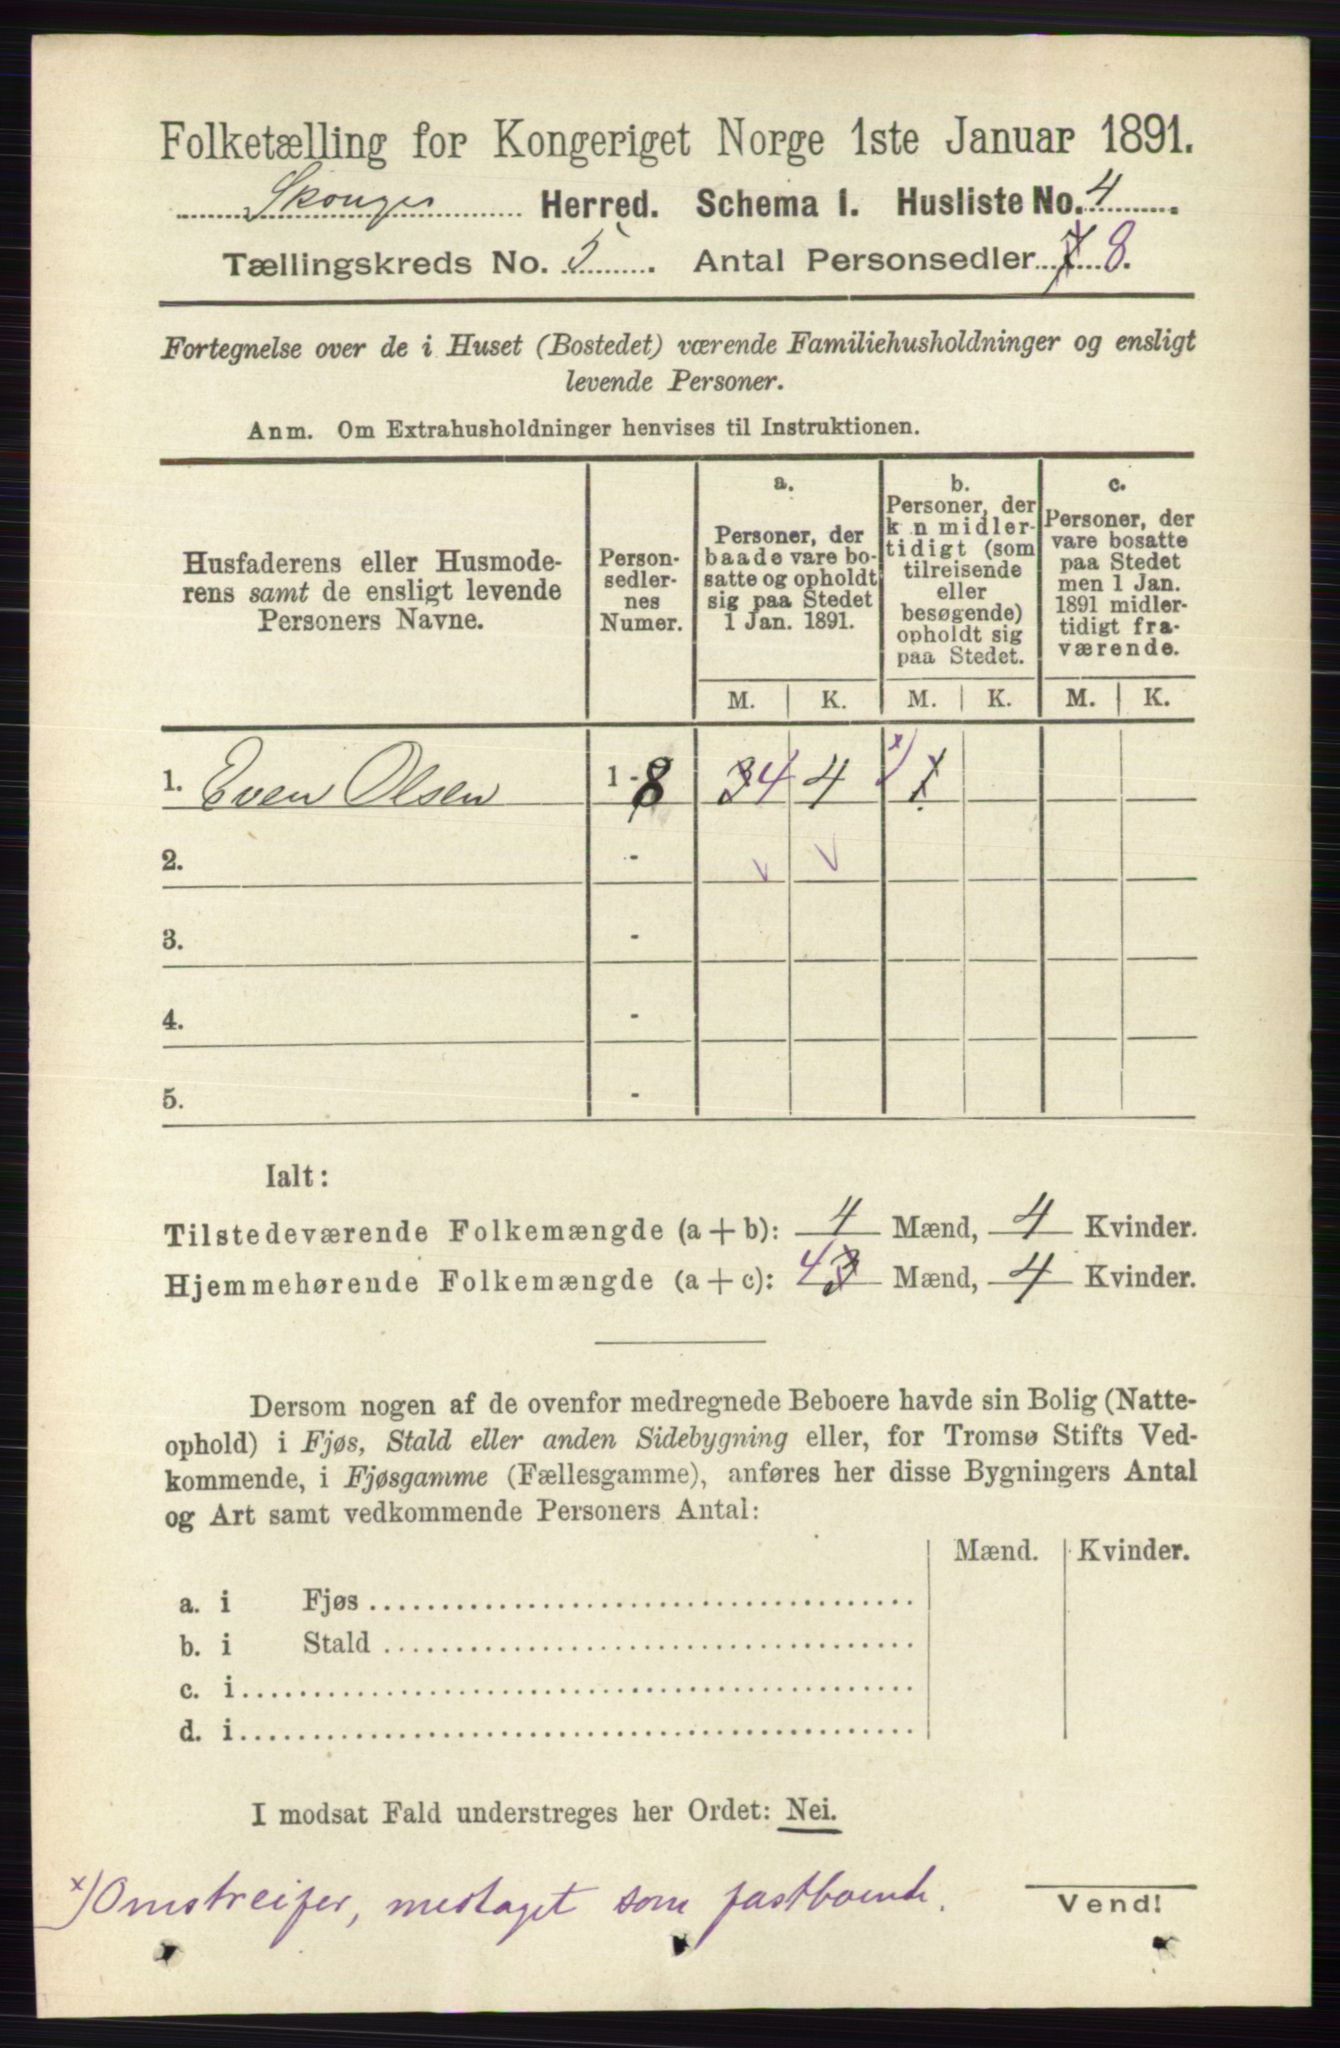 Folketælling for Kongeriget Norge 1ste Januar 1891.
Skouger Herred. Schema 1. Husliste No. 4.
Tællingskreds No. 5. Antal Personsedler 7 8.
Fortegnelse over de i Huset (Bostedet) værende Familiehusholdninger og ensligt
levende Personer.
Anm. Om Extrahusholdninger henvises til Instruktionen.
Husfaderens eller Husmode-
rens samt de ensligt levende
Personers Navne.
Person-
sedler-
nes
Numer.
a.
Personer, der
baade vare bo-
satte og opholdt
sig paa Stedet
1 Jan. 1891.
b.
Personer, der
k n midler-
tidigt (som
tilreisende
eller
besøgende)
opholdt sig
paa Stedet.
c.
Personer, der
vare bosatte
paa Stedet
men 1 Jan.
1891 midler-
tidigt fra-
værende.
M. K. M. K. M. K.
1. Even Olsen 1 - 8 3 4 4 x) 1
2. -
3. -
4. -
5. -
Ialt:
Tilstedeværende Folkemængde (a + b): 4 Mænd, 4 Kvinder.
Hjemmehørende Folkemængde (a + c): 4 3 Mænd, 4 Kvinder.
Dersom nogen af de ovenfor medregnede Beboere havde sin Bolig (Natte-
ophold) i Fjøs, Stald eller anden Sidebygning eller, for Tromsø Stifts Ved-
kommende, i Fjøsgamme (Fællesgamme), anføres her disse Bygningers Antal
og Art samt vedkommende Personers Antal:
Mænd. Kvinder.
a. i Fjøs
b. i Stald
c. i
d. i
I modsat Fald understreges her Ordet: Nei.
x) Omstreifer, medtaget som fastboende.
Vend!